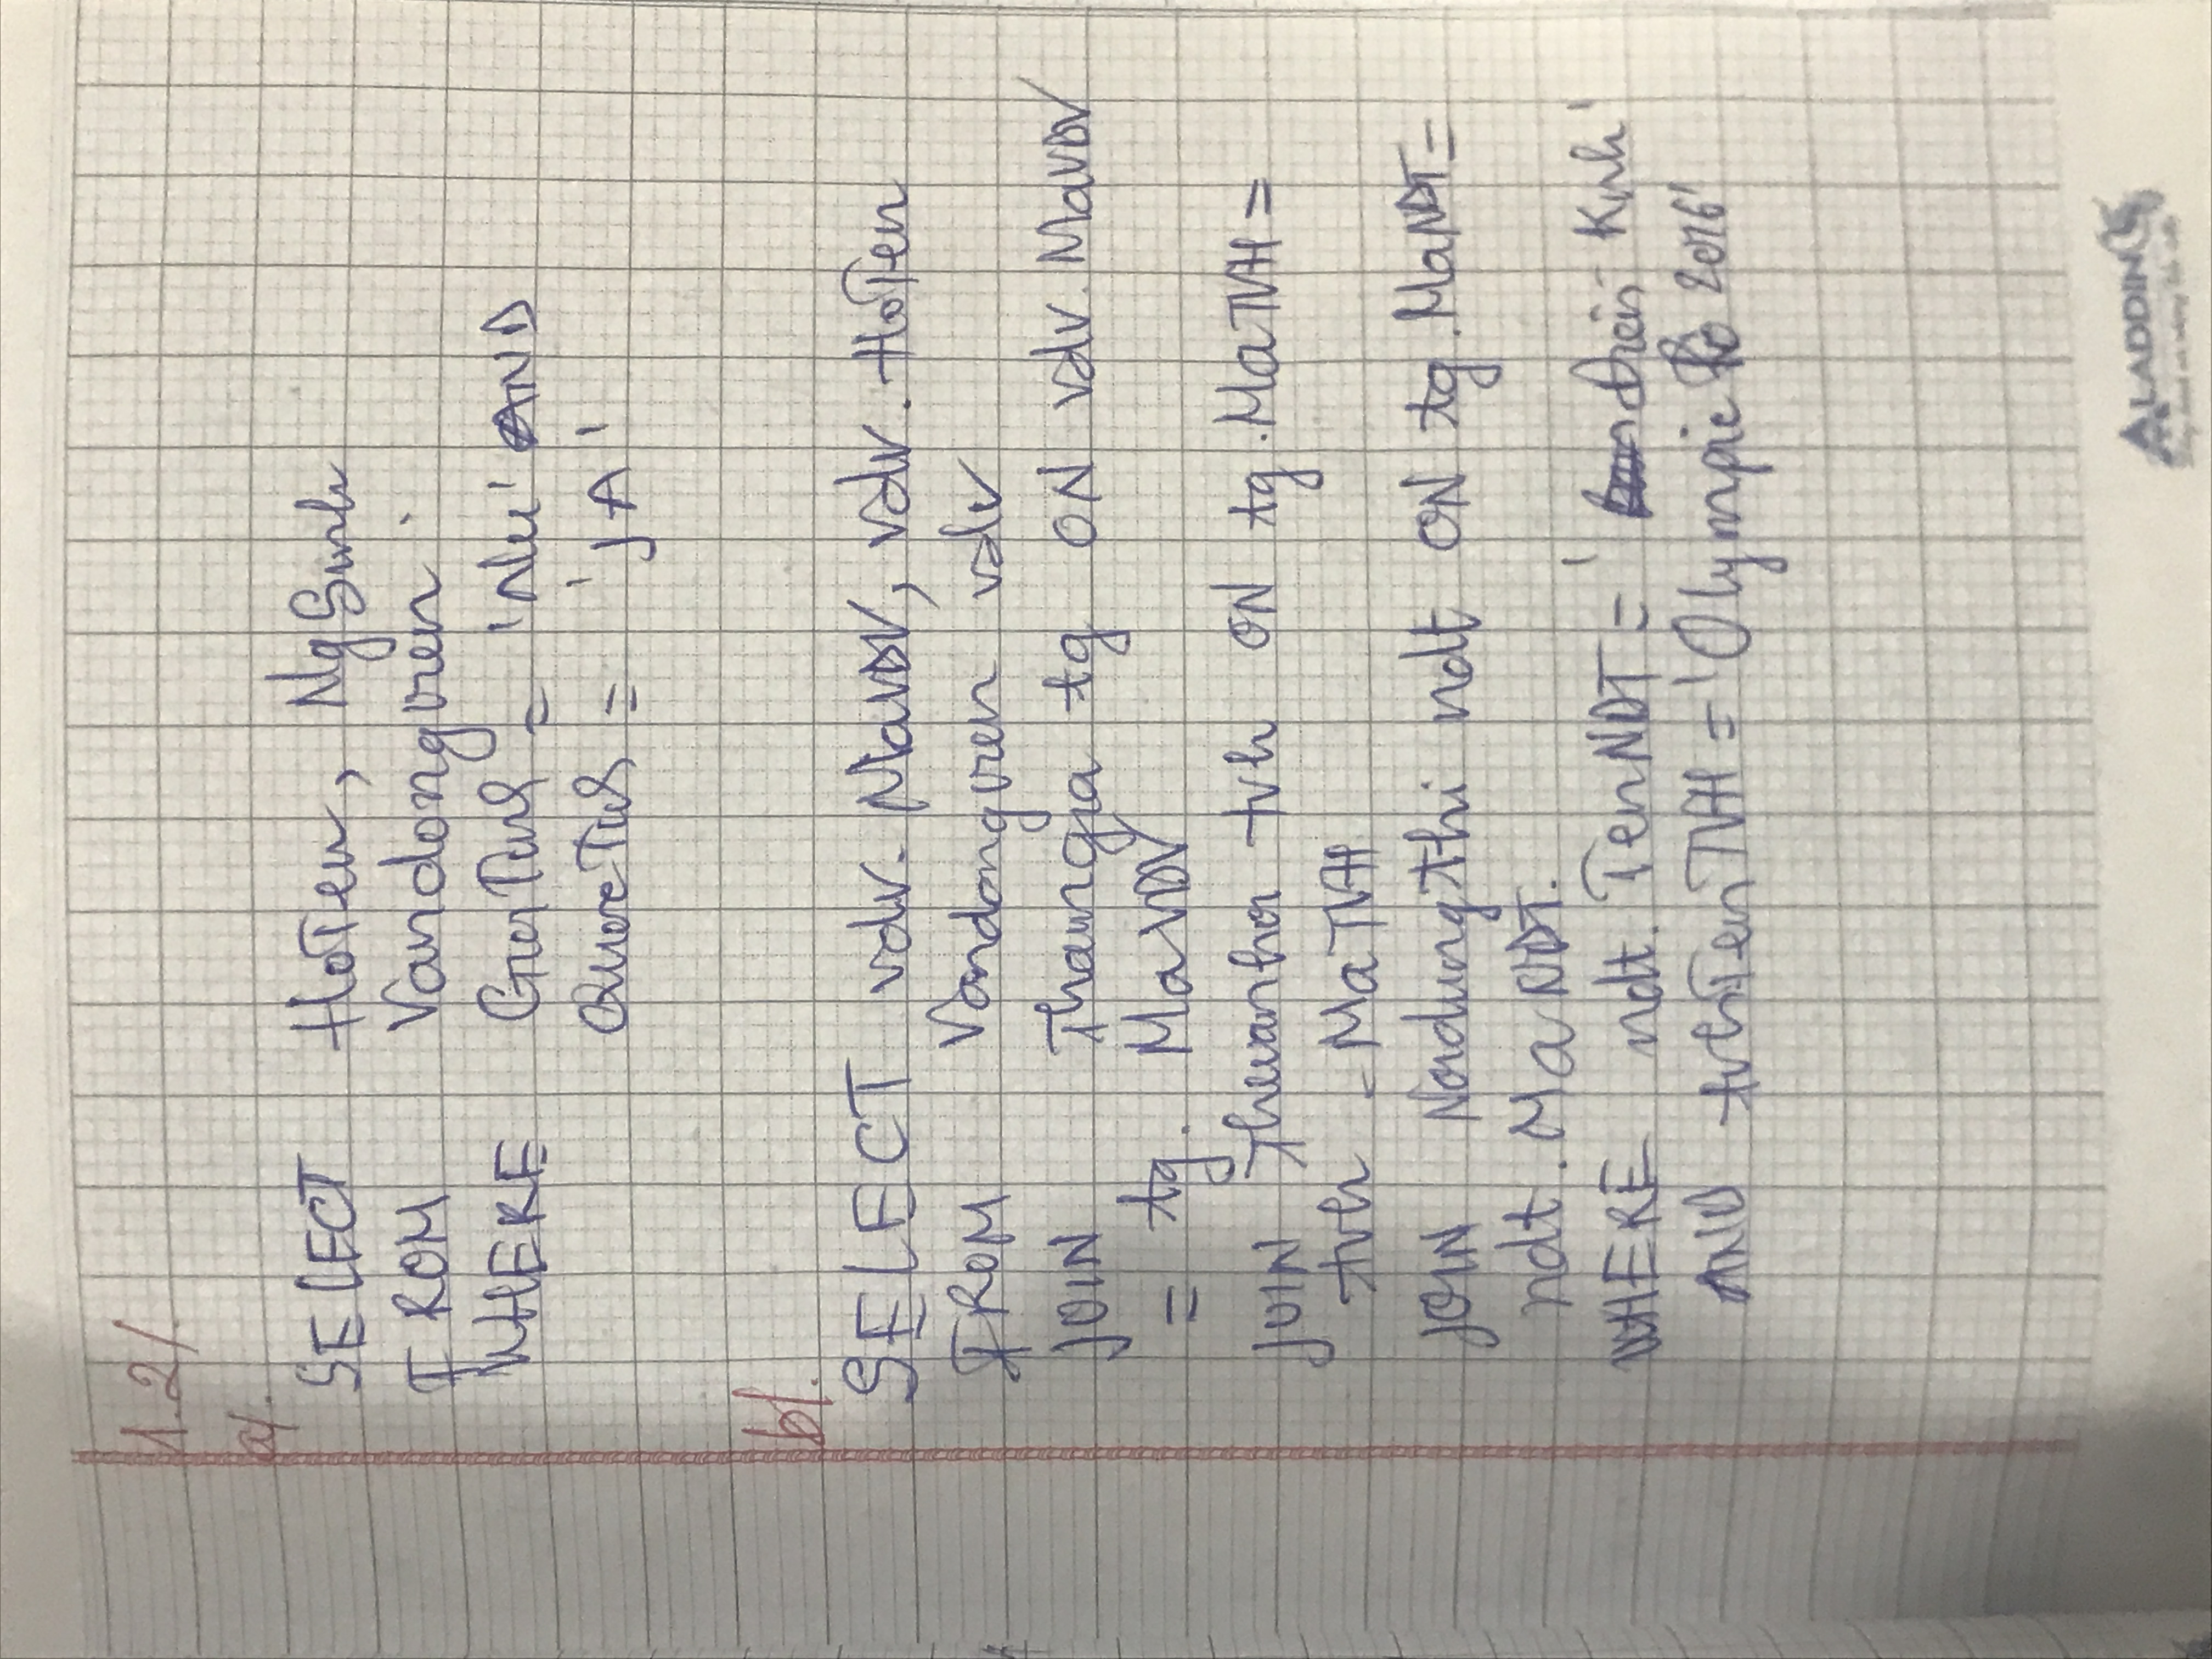 1.2/.
a/.
SELECT HoTen, NgSinh
FROM Vandongvien
WHERE GioiTinh = 'Nu' AND
QuocTich = 'JA'
b/.
SELECT vdv. MaVDV, vdv. HoTen
FROM Vandongvien vdv
JOIN Thamgia tg ON vdv. MaVDV
= tg. MaVDV
JOIN Thevanhoi tvh ON tg.MaTVH =
tvh . MaTVH
JOIN Noidungthi ndt ON tg.MaNDT=
ndt.MaNDT.
WHERE ndt. TenNDT = ' Kinh'
AND tvh.TenTVH = 'Olympic Rio 2016'
ALADDIN